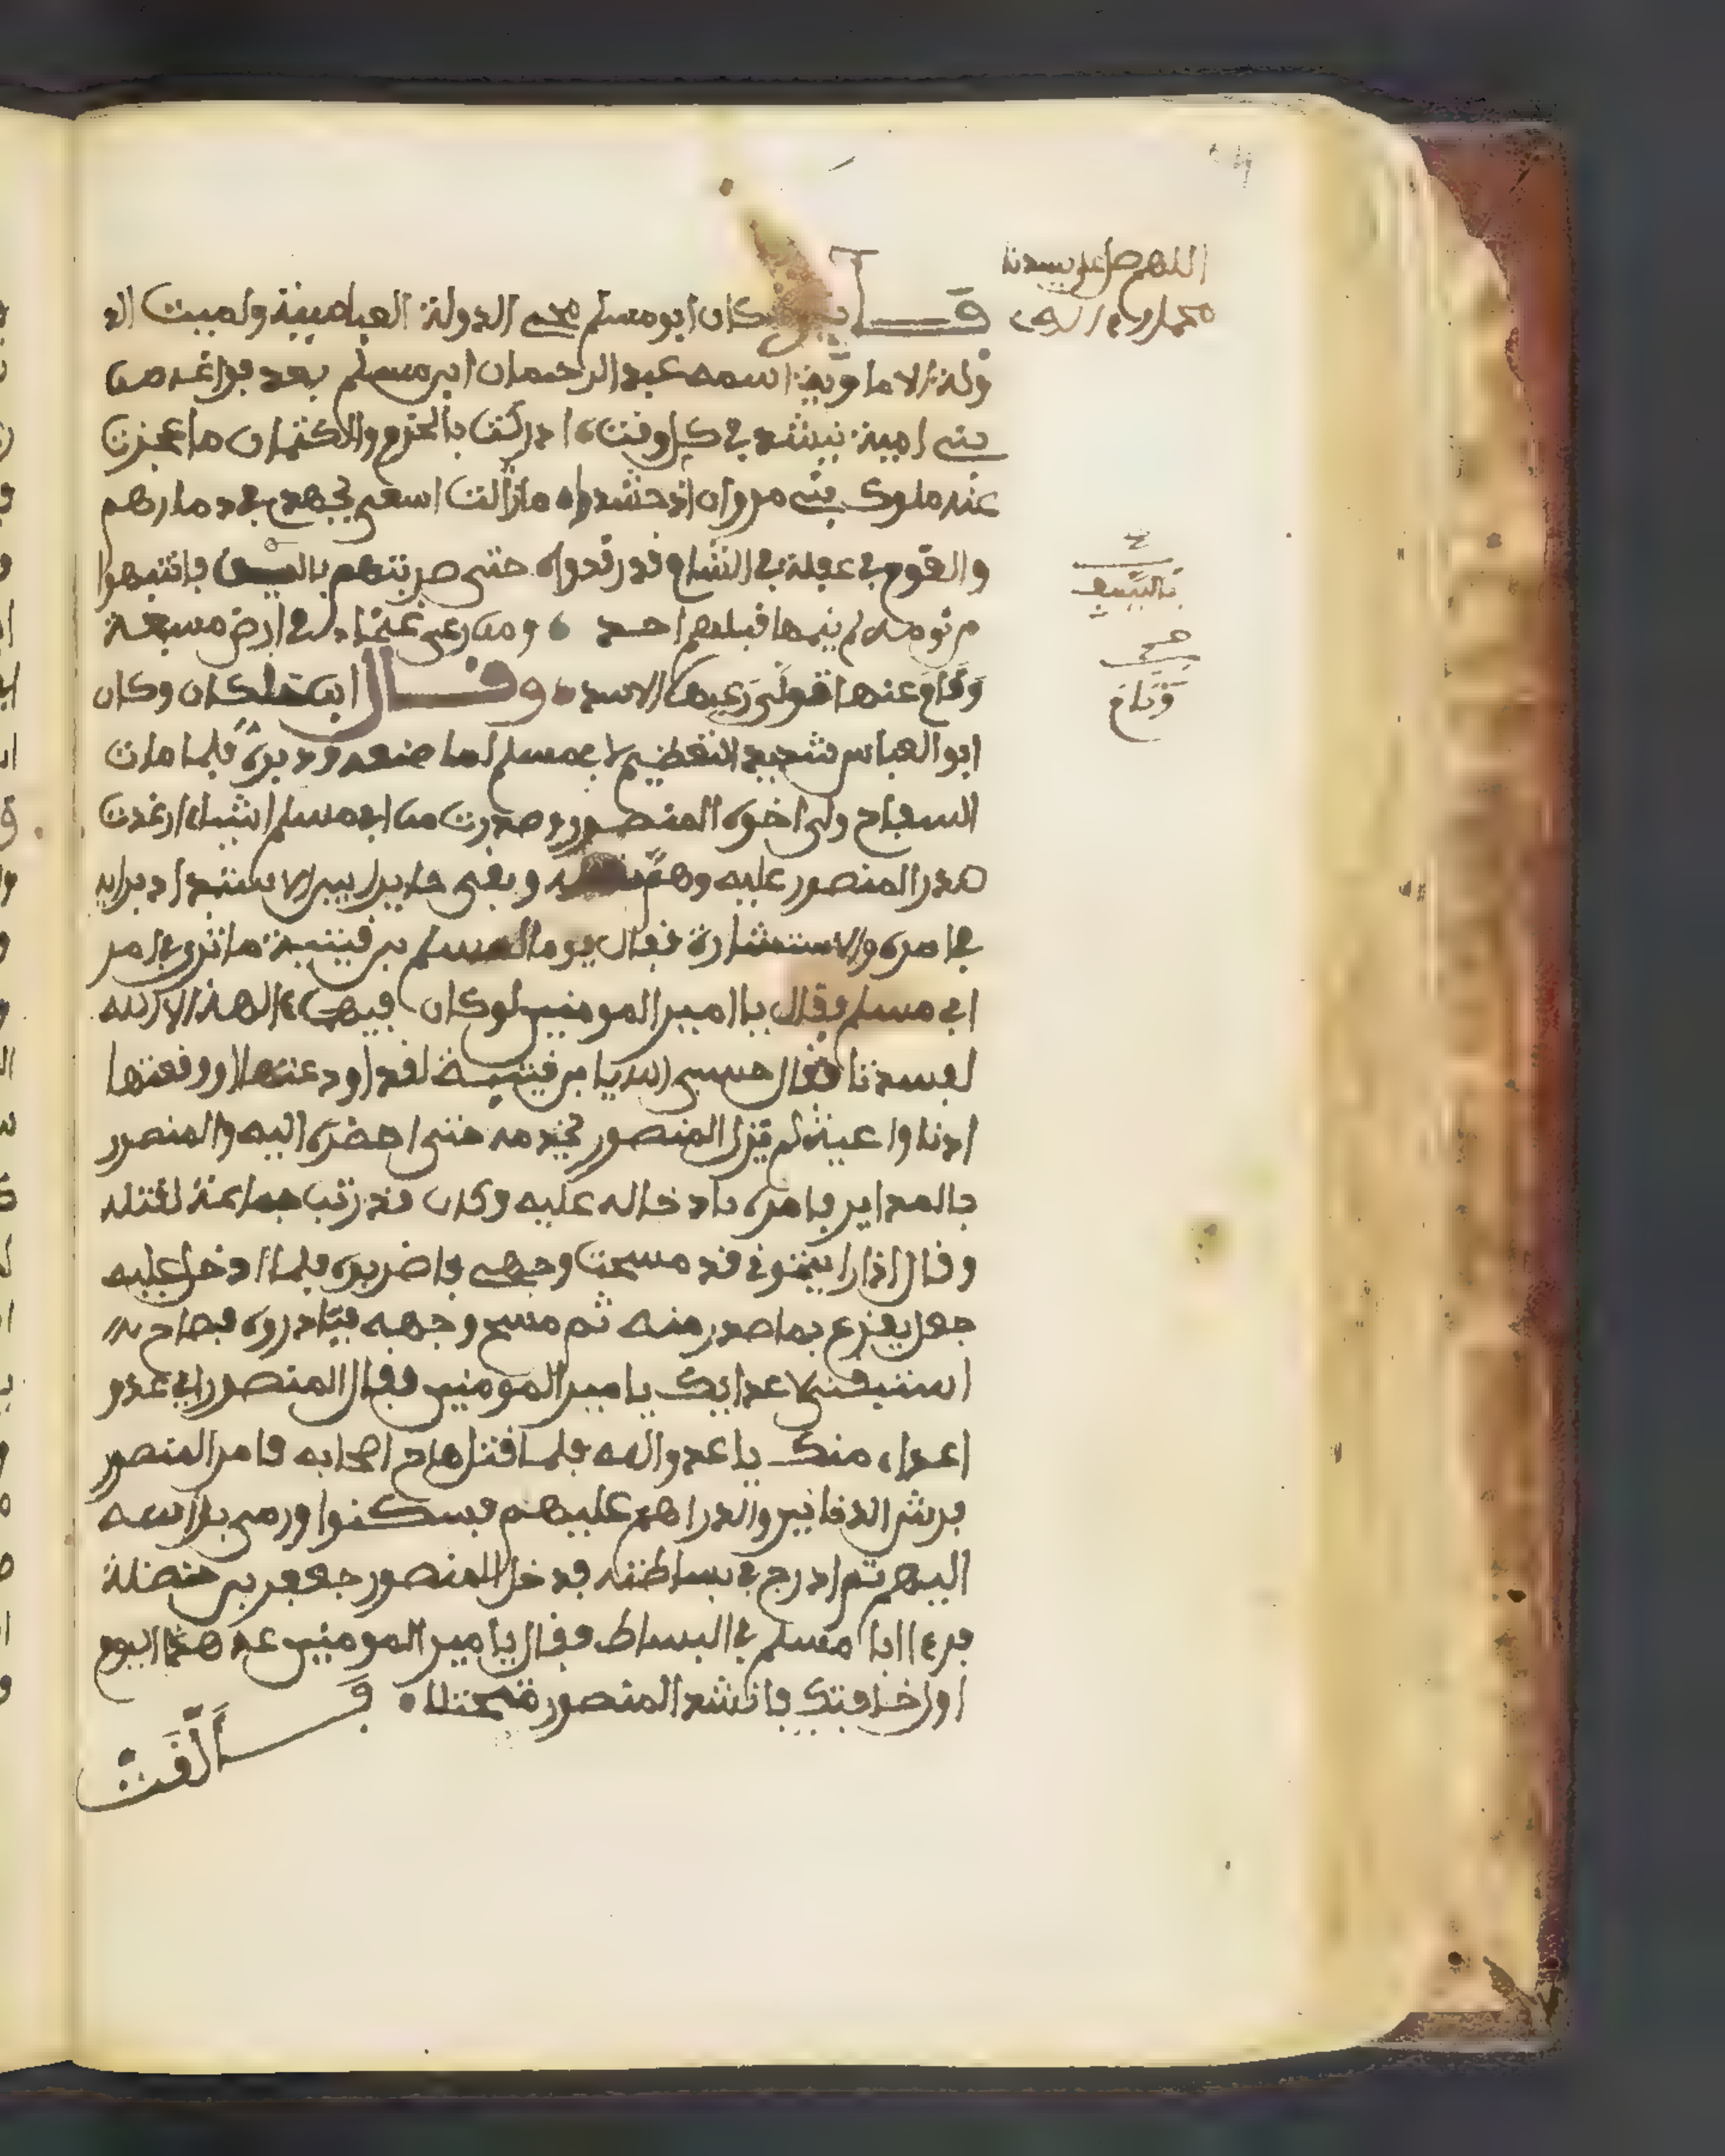 اللهم صل على سيدنا
محمد وءاله
فايدة كان ابو مسلم محيى الدولة العباسية ومميت الد
ولة الاماوية اسمه عبد الرحمان ابن مسلم بعد فراغه من
بنى امية ينشد في كل وقت ادركت بالحزم والاكتمان ما عجزت
عنه ملوك بني مروان اذ حشدوا ما زالت اسعى بجهدي في دمارهم
والقوم في غفلة في الشام قد رقدوا حتى ضربتهم بالسيف فانتبهوا
من نومه لم ينمها قبلهم احد ومن رعى غنما في ارض مسبعة
ونام عنها تولى رعيها الاسد وقال ابن خلكان وكان
ابو العباس شديد التعظيم لابي مسلم لما صنعه ودبره فلما مات
السفاح ولى اخوه المنصور وصدرت من ابي مسلم اشياء ارغدت
صدر المنصور عليه وهم بقتله وبقى حايرا بين الاستبداد برايه
في امره والاستشارة فقال يوما لمسلم بن قتيبة ما ترى في امر
ابي مسلم فقال يا امير المومنين لو كان فيهما ءالهة الا الله
لفسدتا فقال حسبي الله يا بن قتيبة لقد اودعتها
اذنا واعية لم يزل المنصور يخدمه حتى احضره اليه والمنصور
بالمداين فامره بادخاله عليه وكان قد رتب جماعة لقتله
وقال اذا رايتموني قد مسحت وجهي فاضربوه فلما ادخل عليه
جعل يفزع بما صدر منه ثم مسح وجهه فبادروه فصاح
استبقني لاعدايك يا امير المومنين فقال المنصور اي عدو
اعداء منك يا عدو الله فلما قتل هاج اصحابه فامر المنصور
برش الدنانير والدراهم عليهم فسكنوا ورمى براسه
اليهم ثم ادرج في بساطته فدخل المنصور جعفر بن حنضلة
فرءا ابا مسلم في البساط فقال يا امير المومنين عد هذا اليوم
اول خلافتك فانشد المنصور
فالقت
بالسيف
صح
ونام